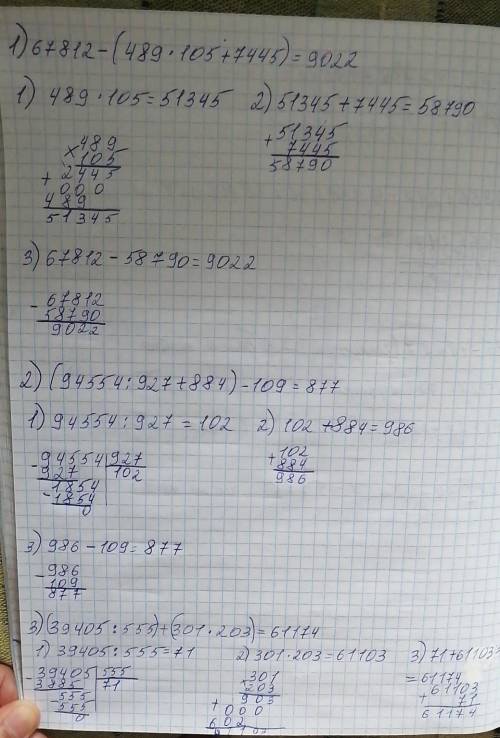 1) 67812-(489·105+7445)=9022
1) 489·105=51345 2) 51345+7445=58790
×489
105
+2445
000
489
51345
+51345
7445
58790
3) 67812-58790=9022
-67812
58790
9022
2) (94554:927+884)-109=877
1) 94554:927=102 2) 102+884=986
-94554|927
927 102
1854
-1854
0
+102
884
986
3) 986-109=877
-986
109
877
3) (39405:555)+(301·203)=61174
1) 39405:555=71 2) 301·203=61103 3) 71+61103
=61174
-39405|555
3885 71
-555
555
0
×301
203
+903
000
602
+61103
71
61174